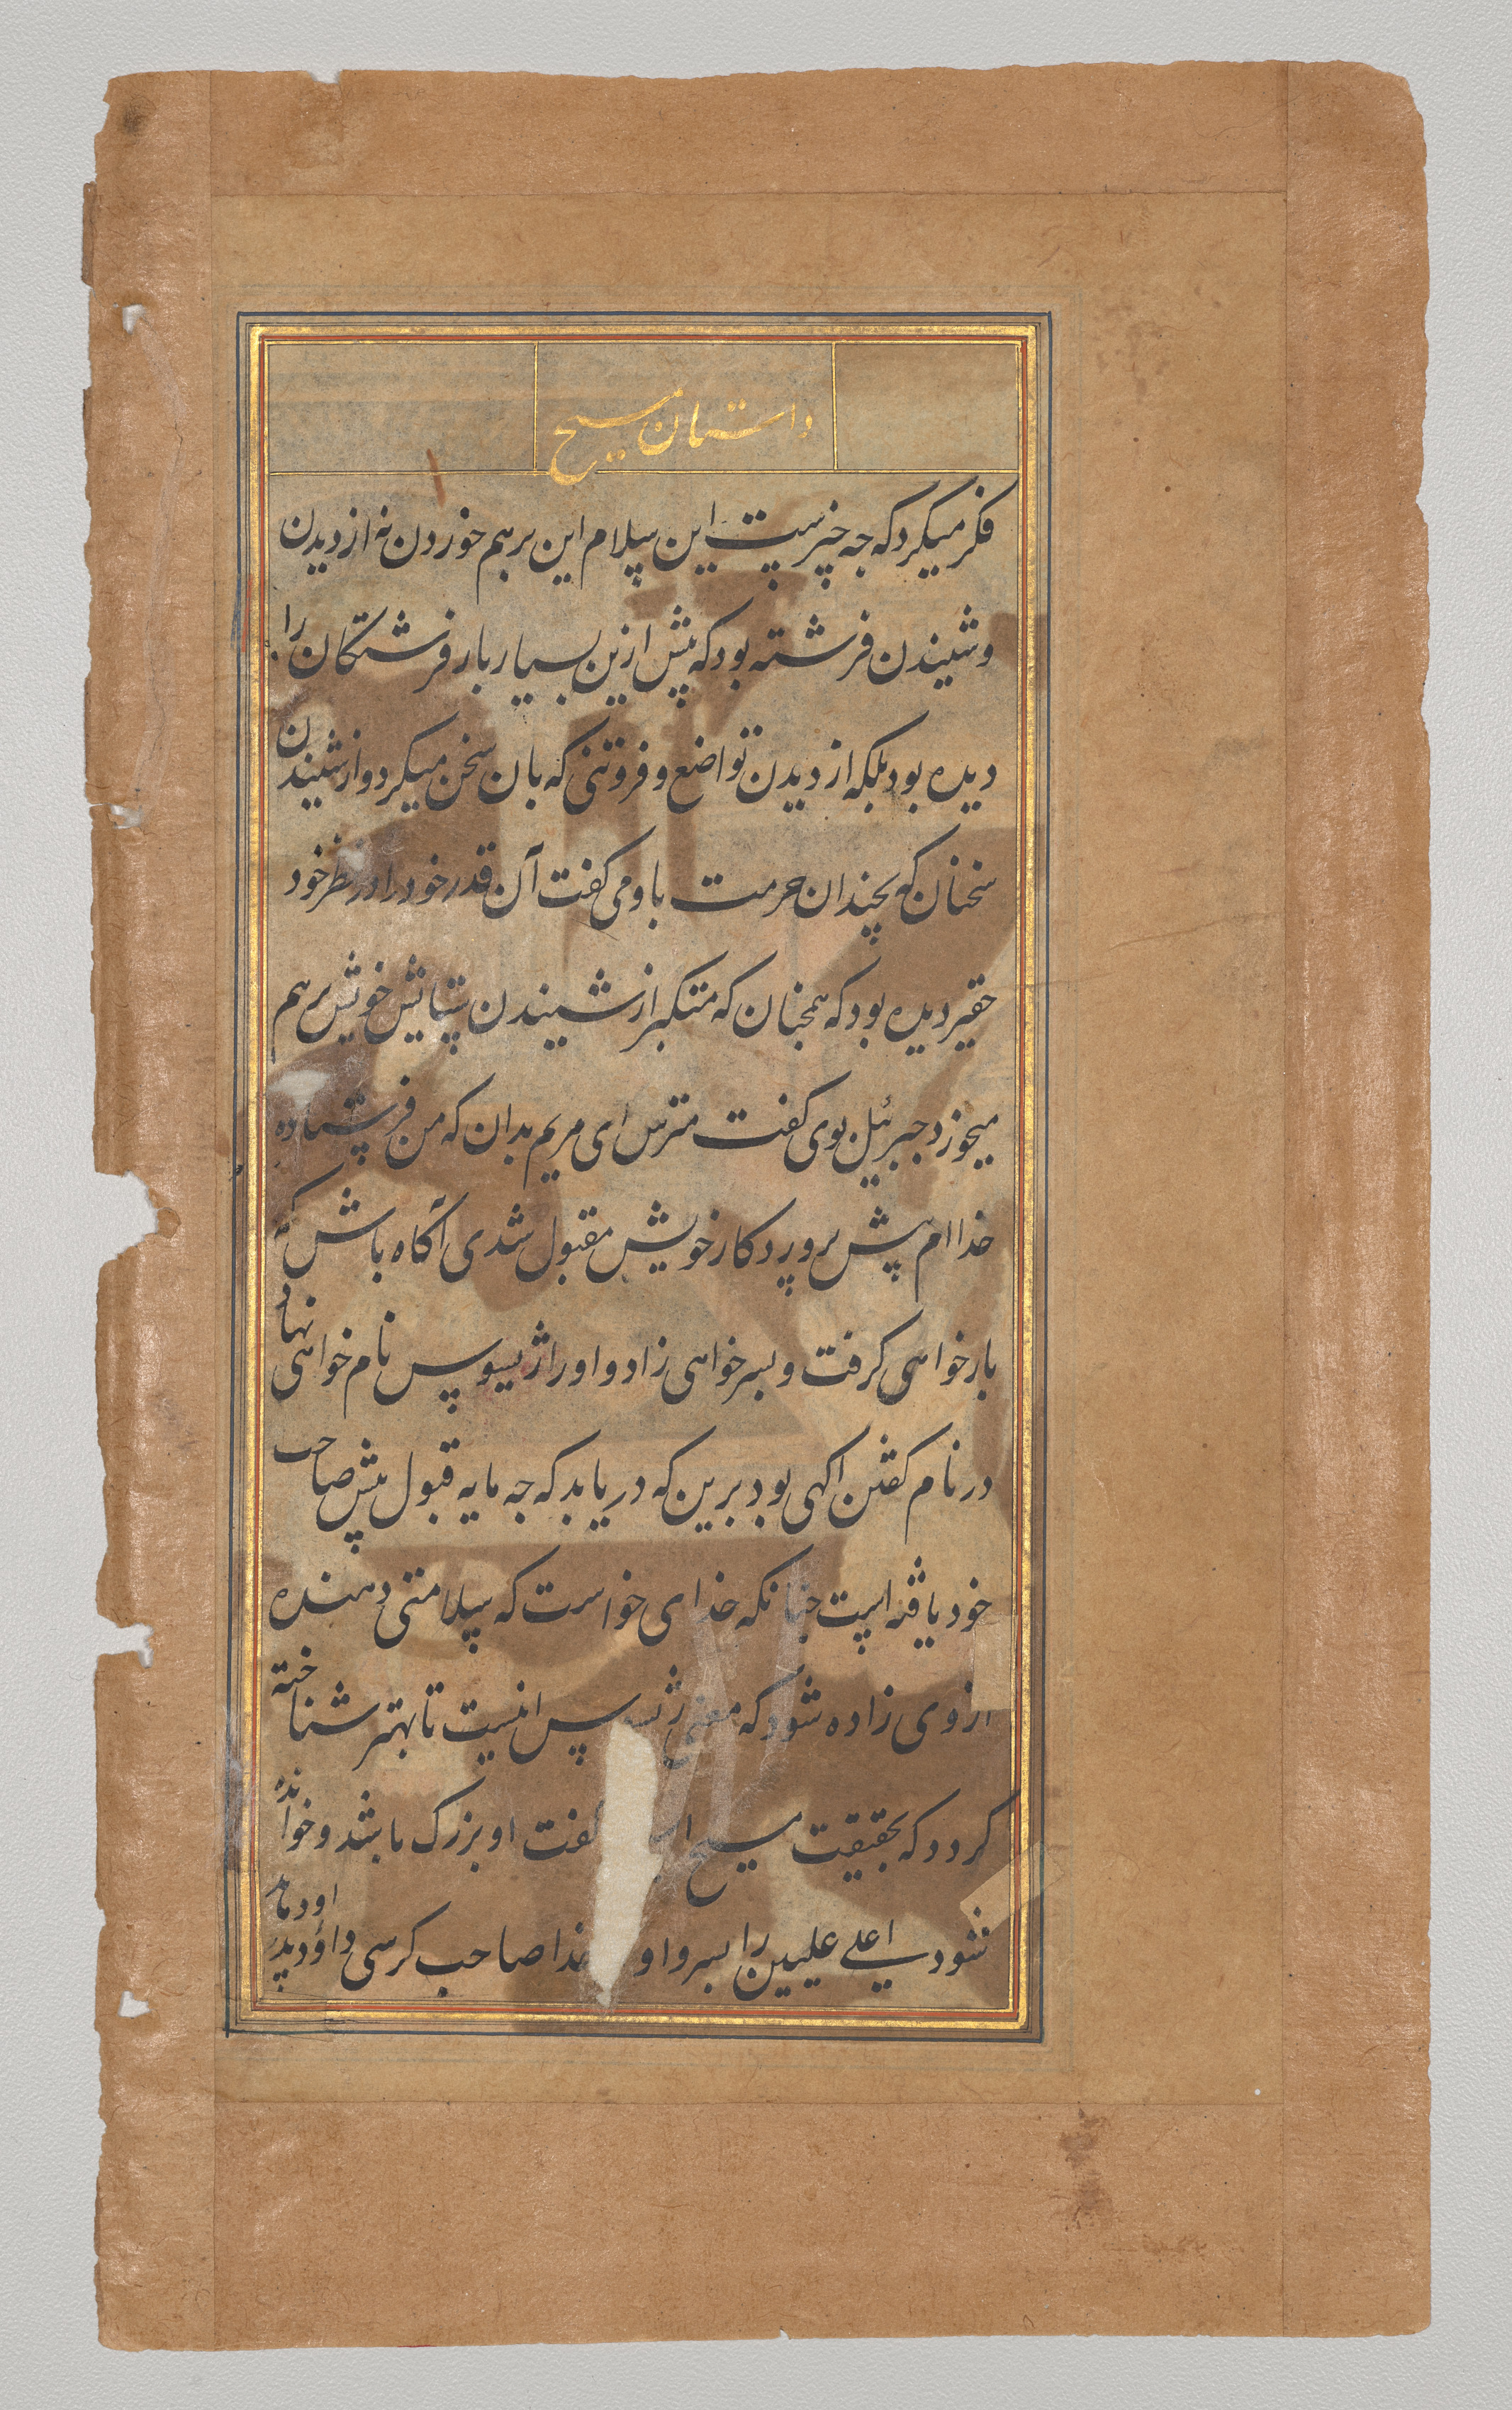 داستان مسیح
فکر میکرد که چه چیزست این سلام این برهم خوردن نه از دیدن
و شنیدن فرشته بود که پیش ازین بسیار بار فرشتگان را
دیده بود بلکه از دیدن تواضع و فروتنی که بان سخن میکرد و از شنیدن
سخنان که بچندان حرمت باو می گفت آن قدر خود را در نظر خود
حقیر دیده بود که همچنان که متکبر از شنیدن ستایش خویش برهم
میخورد جبرئیل بوی گفت مترس ای مریم بدان که من فرستاده
خداام پیش پروردگار خویش مقبول شدی آگاه باش که
بار خواهی گرفت و پسر خواهی زاد و او را ژیسوس نام خواهی نهاد
در نام گفتن اگهی بود برین که دریابد که چه مایه قبول پیش صاحب
خود یافته است چنانکه خدای خواست که سلامتی دهنده
ازوی زاده شود که معنی ژیسوس اینست تا بهتر شناخته
گردد که بحقیقت مسیح گفت او بزرگ باشد و خوانده
شود اعلی علیین را پسر و او خدا صاحب کرسی داؤد پدر او دهد